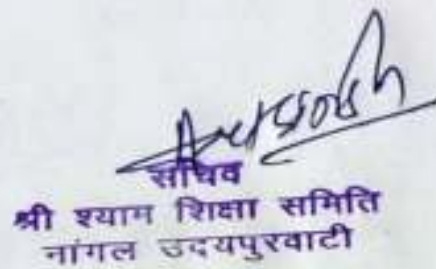 सचिव
श्री श्याम शिक्षा समिति
नांगल उदयपुरवाटी